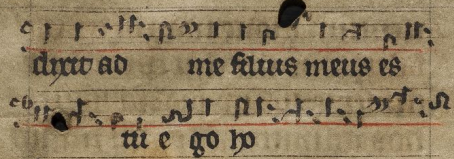 dixit ad me filius meus es
tu e go ho